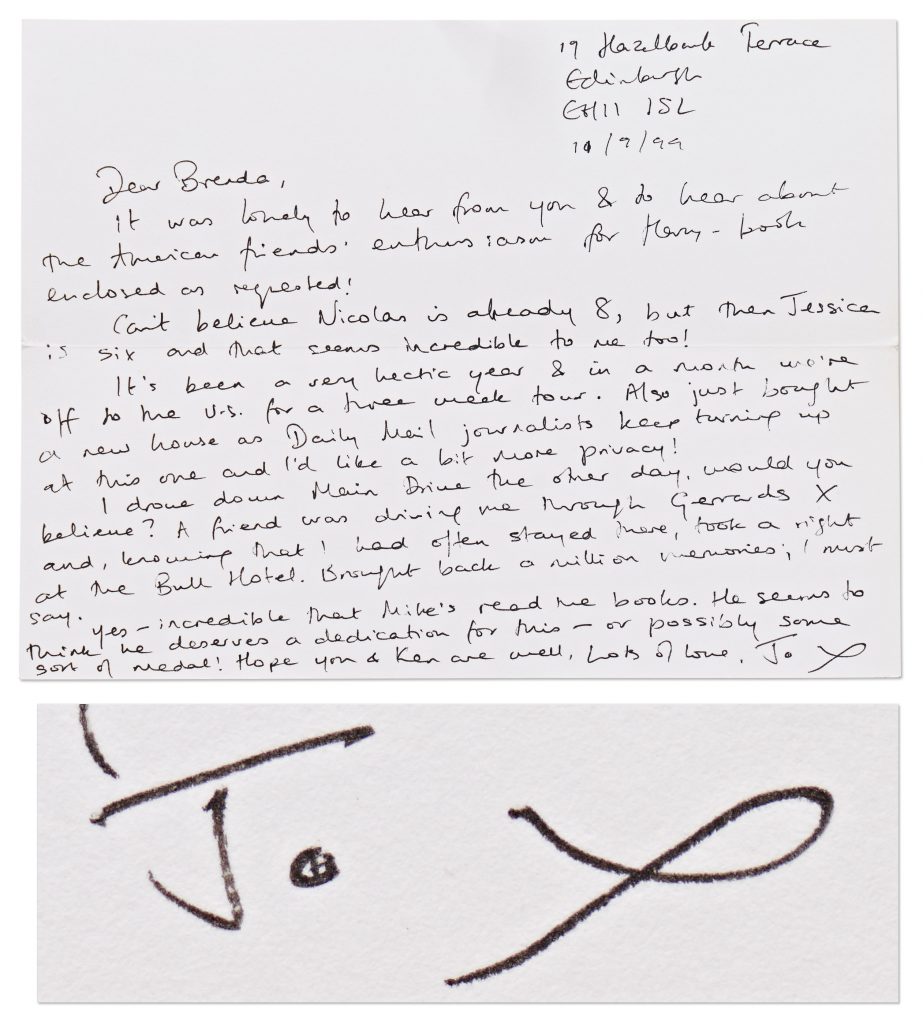 19 Hazelbank Terrace
Edinburgh
EH11 1SL
10/9/99
Dear Brenda,
It was lovely to hear from you & to hear about
the American friends' enthusiasm for Harry - book
enclosed as requested!
Can't believe Nicolas is already 8, but then Jessica
is six and that seems incredible to me too!
It's been a very hectic year & in a month we're
off to the U.S. for a three week tour. Also just bought
a new house as Daily Mail journalists keep turning up
at this one and I'd like a bit more privacy!
I drove down Main Drive the other day, would you
believe? A friend was driving me through Gerrards X
and, knowing that I had often stayed there, took a right
at the Bull Hotel. Brought back a million memories, I must
say.
Yes - incredible that Mike's read the books. He seems to
think he deserves a dedication for this - or possibly some
sort of medal! Hope you & Ken are well, Lots of love, Jo x
Jo x